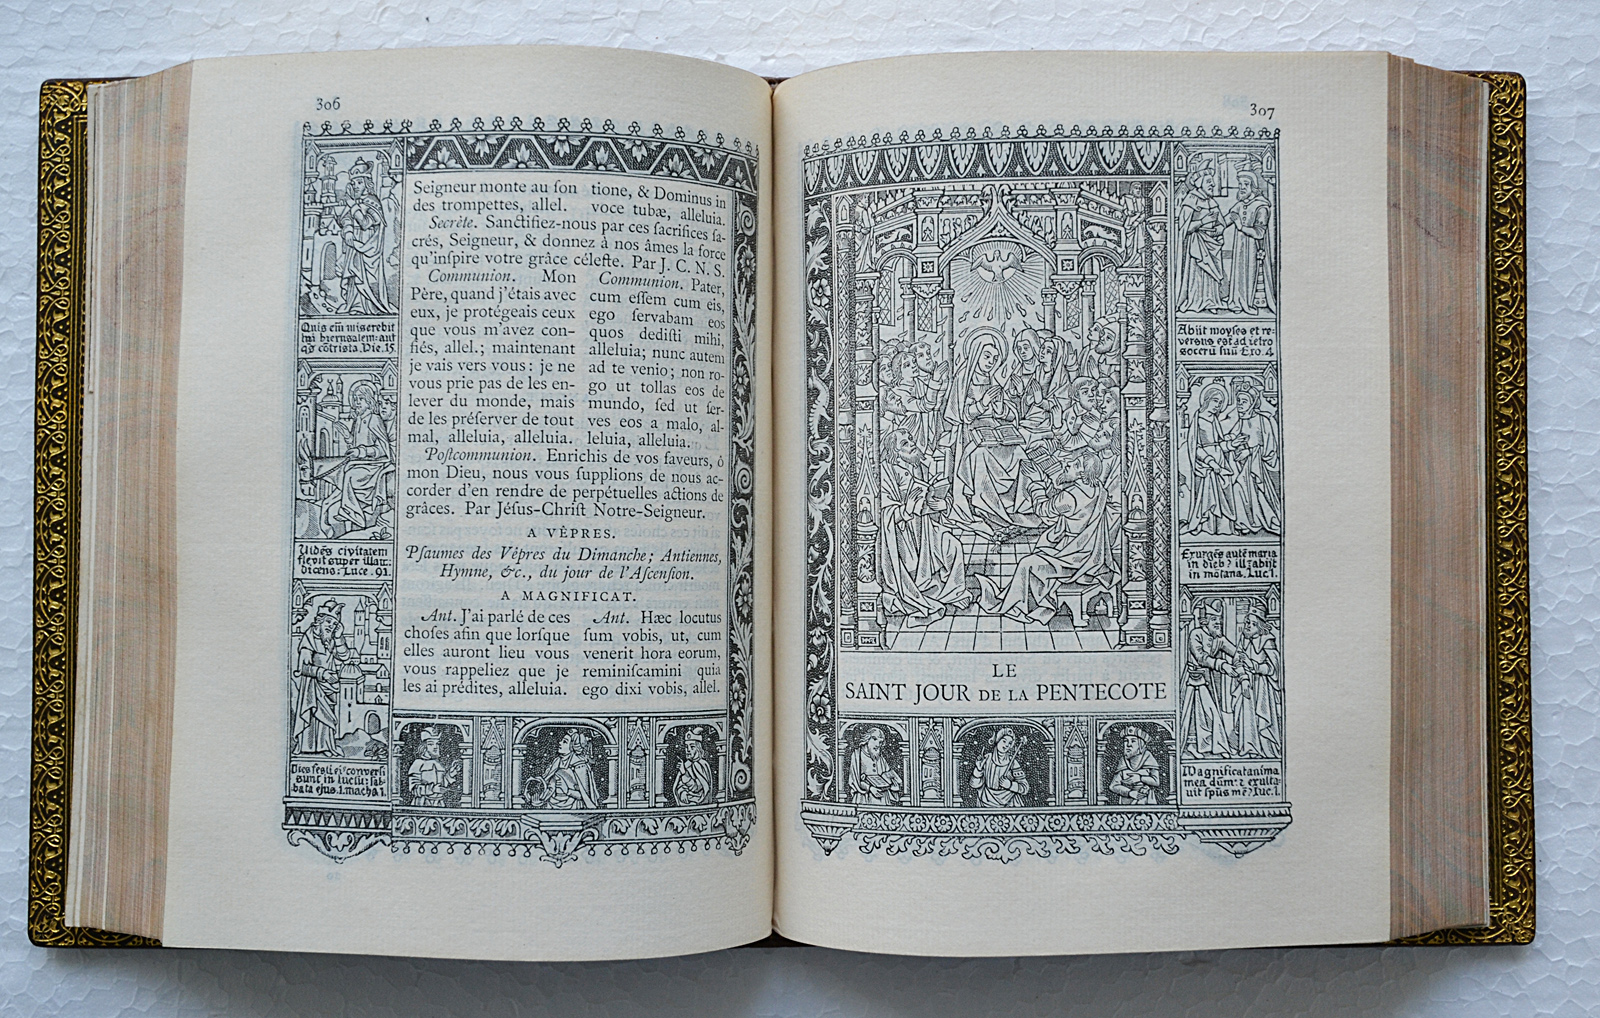 306
Seigneur monte au ſon
des trompettes, allel.
tione, & Dominus in
voce tubæ, alleluia.
Secrète. Sanctifiez-nous par ces ſacrifices ſa-
crés, Seigneur, & donnez à nos âmes la force
qu'inſpire votre grâce céleſte. Par J. C. N. S.
Communion. Mon
Père, quand j'étais avec
eux, je protégeais ceux
que vous m'avez con-
fiés, allel.; maintenant
je vais vers vous : je ne
vous prie pas de les en-
lever du monde, mais
de les préſerver de tout
mal, alleluia, alleluia.
Communion. Pater,
cum eſſem cum eis,
ego ſervabam eos
quos dediſti mihi,
alleluia; nunc autem
ad te venio; non ro-
go ut tollas eos de
mundo, ſed ut ſer-
ves eos a malo, al-
leluia, alleluia.
Poſtcommunion. Enrichis de vos faveurs, ô
mon Dieu, nous vous ſupplions de nous ac-
corder d'en rendre de perpétuelles actions de
grâces. Par Jéſus-Chriſt Notre-Seigneur.
A VÊPRES.
Pſaumes des Vêpres du Dimanche; Antiennes,
Hymne, &c., du jour de l'Aſcenſion.
A MAGNIFICAT.
Ant. J'ai parlé de ces
choſes afin que lorſque
elles auront lieu vous
vous rappeliez que je
les ai prédites, alleluia.
Ant. Hæc locutus
ſum vobis, ut, cum
venerit hora eorum,
reminiſcamini quia
ego dixi vobis, allel.
Quis em̄ miserebit
tui hierusalem: aut
contrista. Hie. 15.
Uidēs civitatem
flevit super illam:
dicens: Luce. 91.
Dies festi ei' conversi
sunt in luctū: sab-
bata ejus. 1. macha 1.
307
LE
SAINT JOUR DE LA PENTECOTE
Abiit moyses et re-
versus est ad ietro
socerū suū Exo. 4
Exurgēs autē maria
in dieb? ill? abijt
in mōtana. Luc. 1.
Magnificat anima
mea dūm: ? exulta-
uit spūs me? Luc. 1.